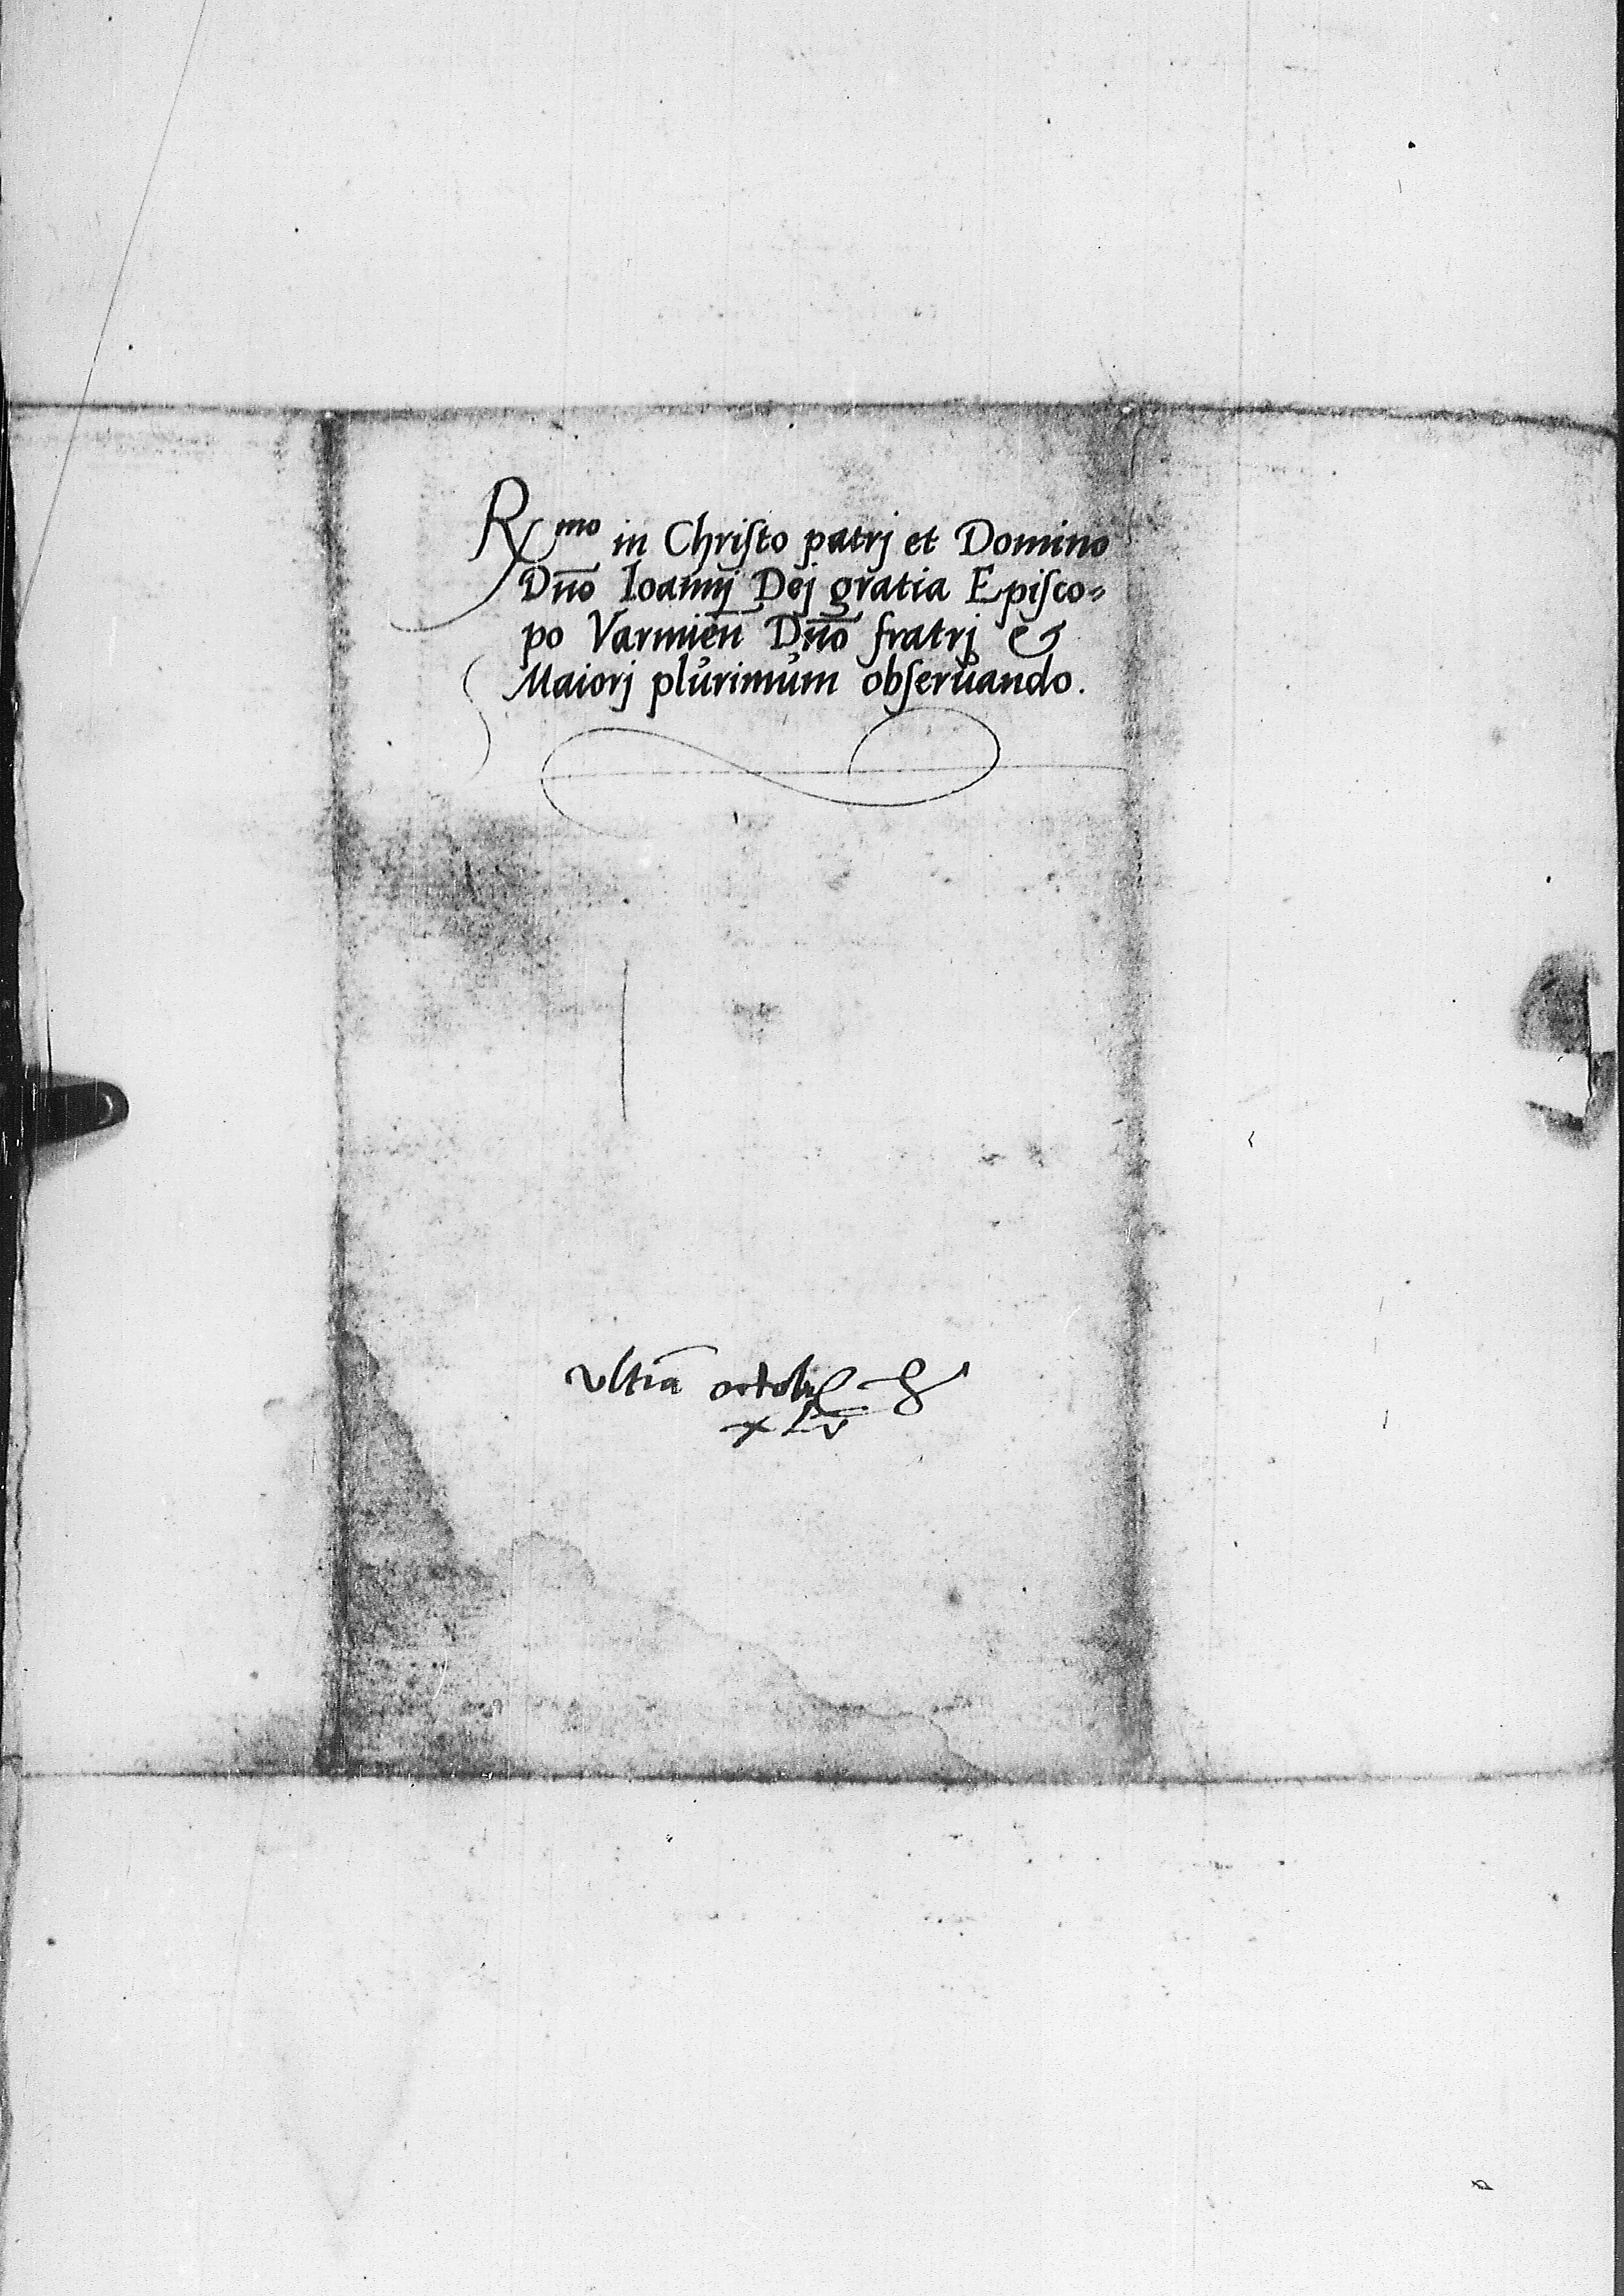 Rmo in Chriſto patrj et Domino
Dño Ioannj Dej gratia Epiſco=
po Varmieñ Dño fratrj &
Maiorj plurimum obſeruando.
vltiã octobr
xLv